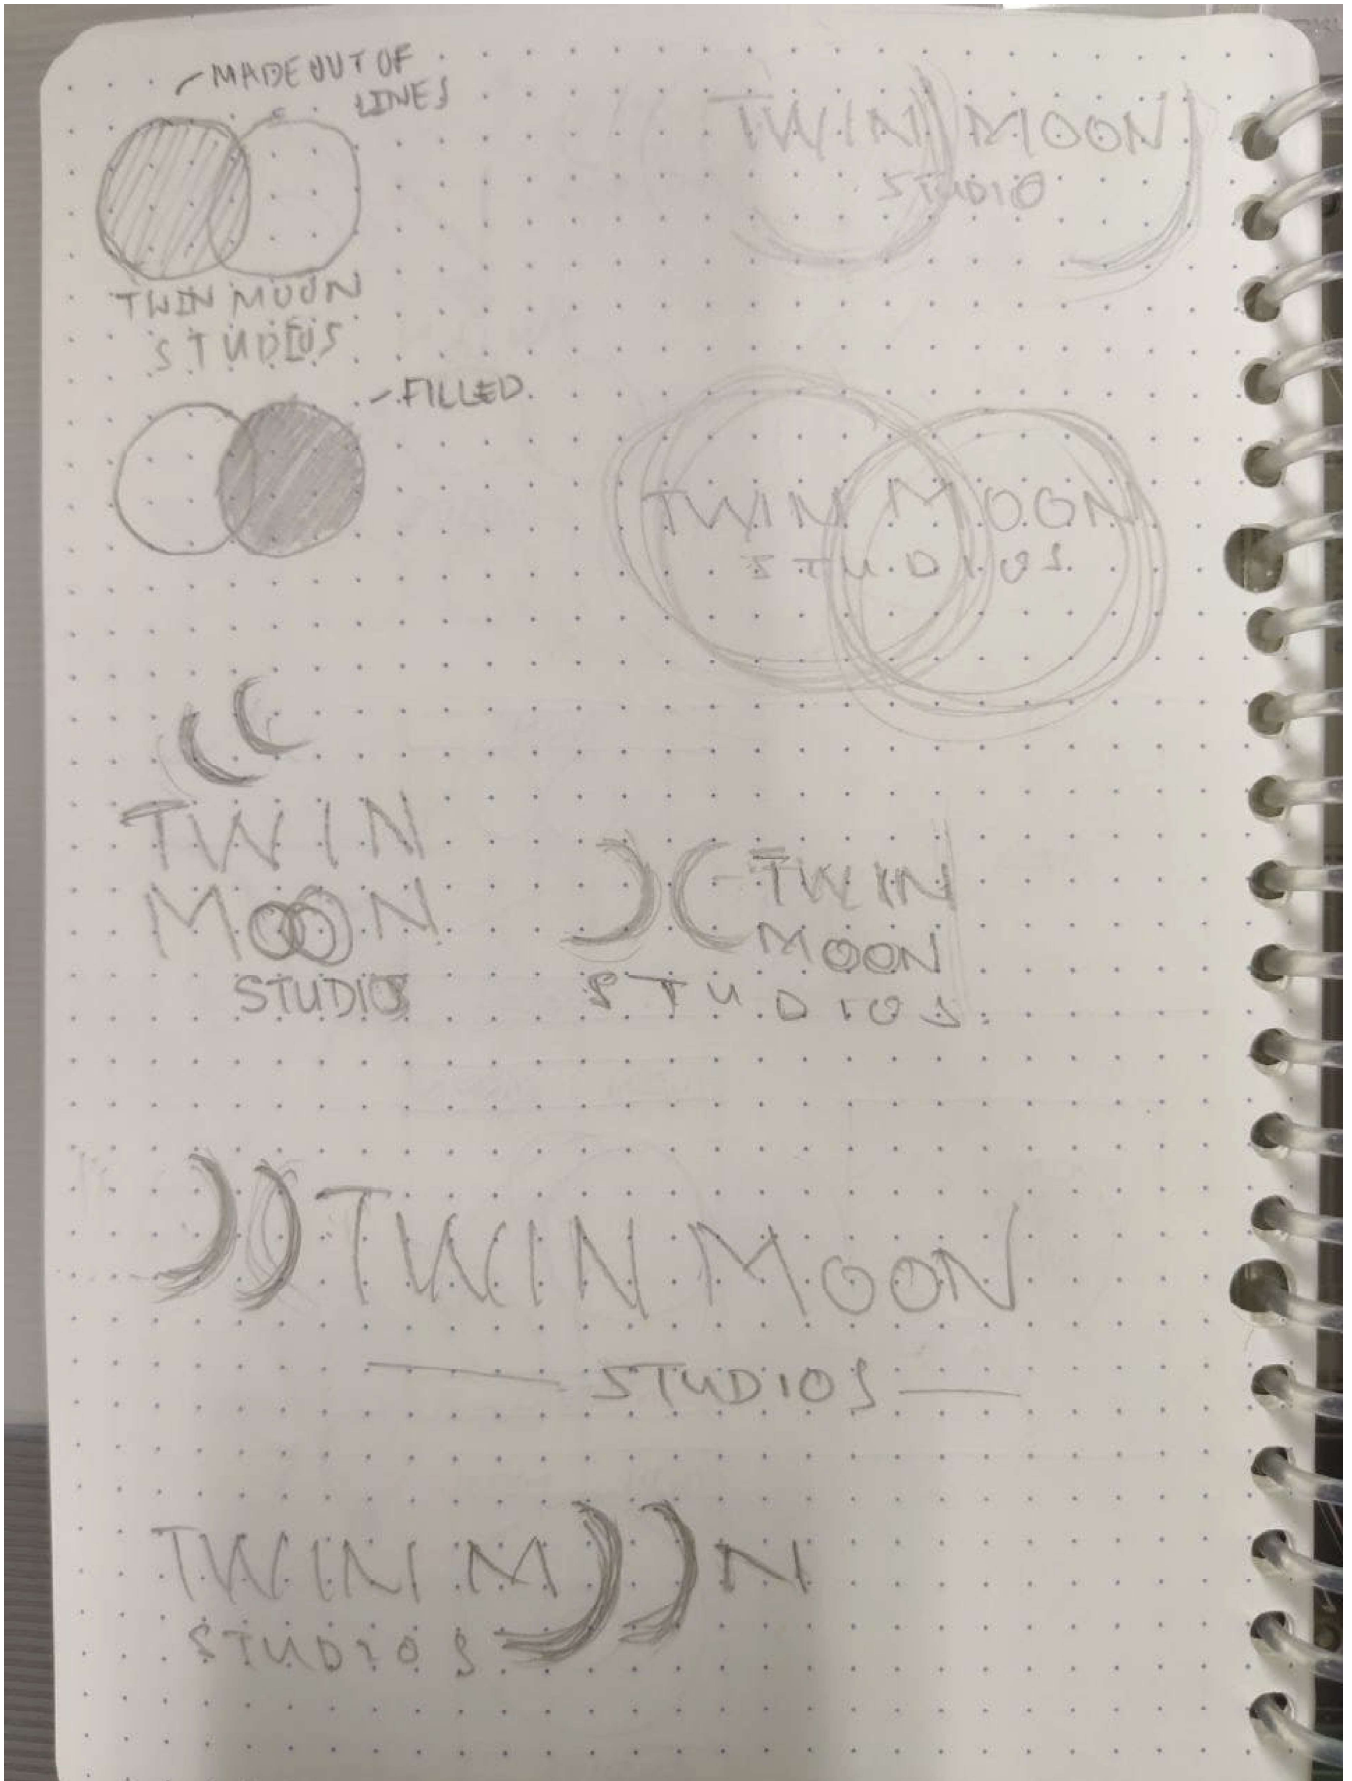 MADE OUT OF
LINES
TWIN MOON
STUDIOS
TWIN MOON
STUDIO
FILLED
TWIN MOON
STUDIOS
TWIN
MOON
STUDIOS
TWIN
MOON
STUDIOS
TWIN MOON
STUDIOS
TWIN MOON
STUDIOS